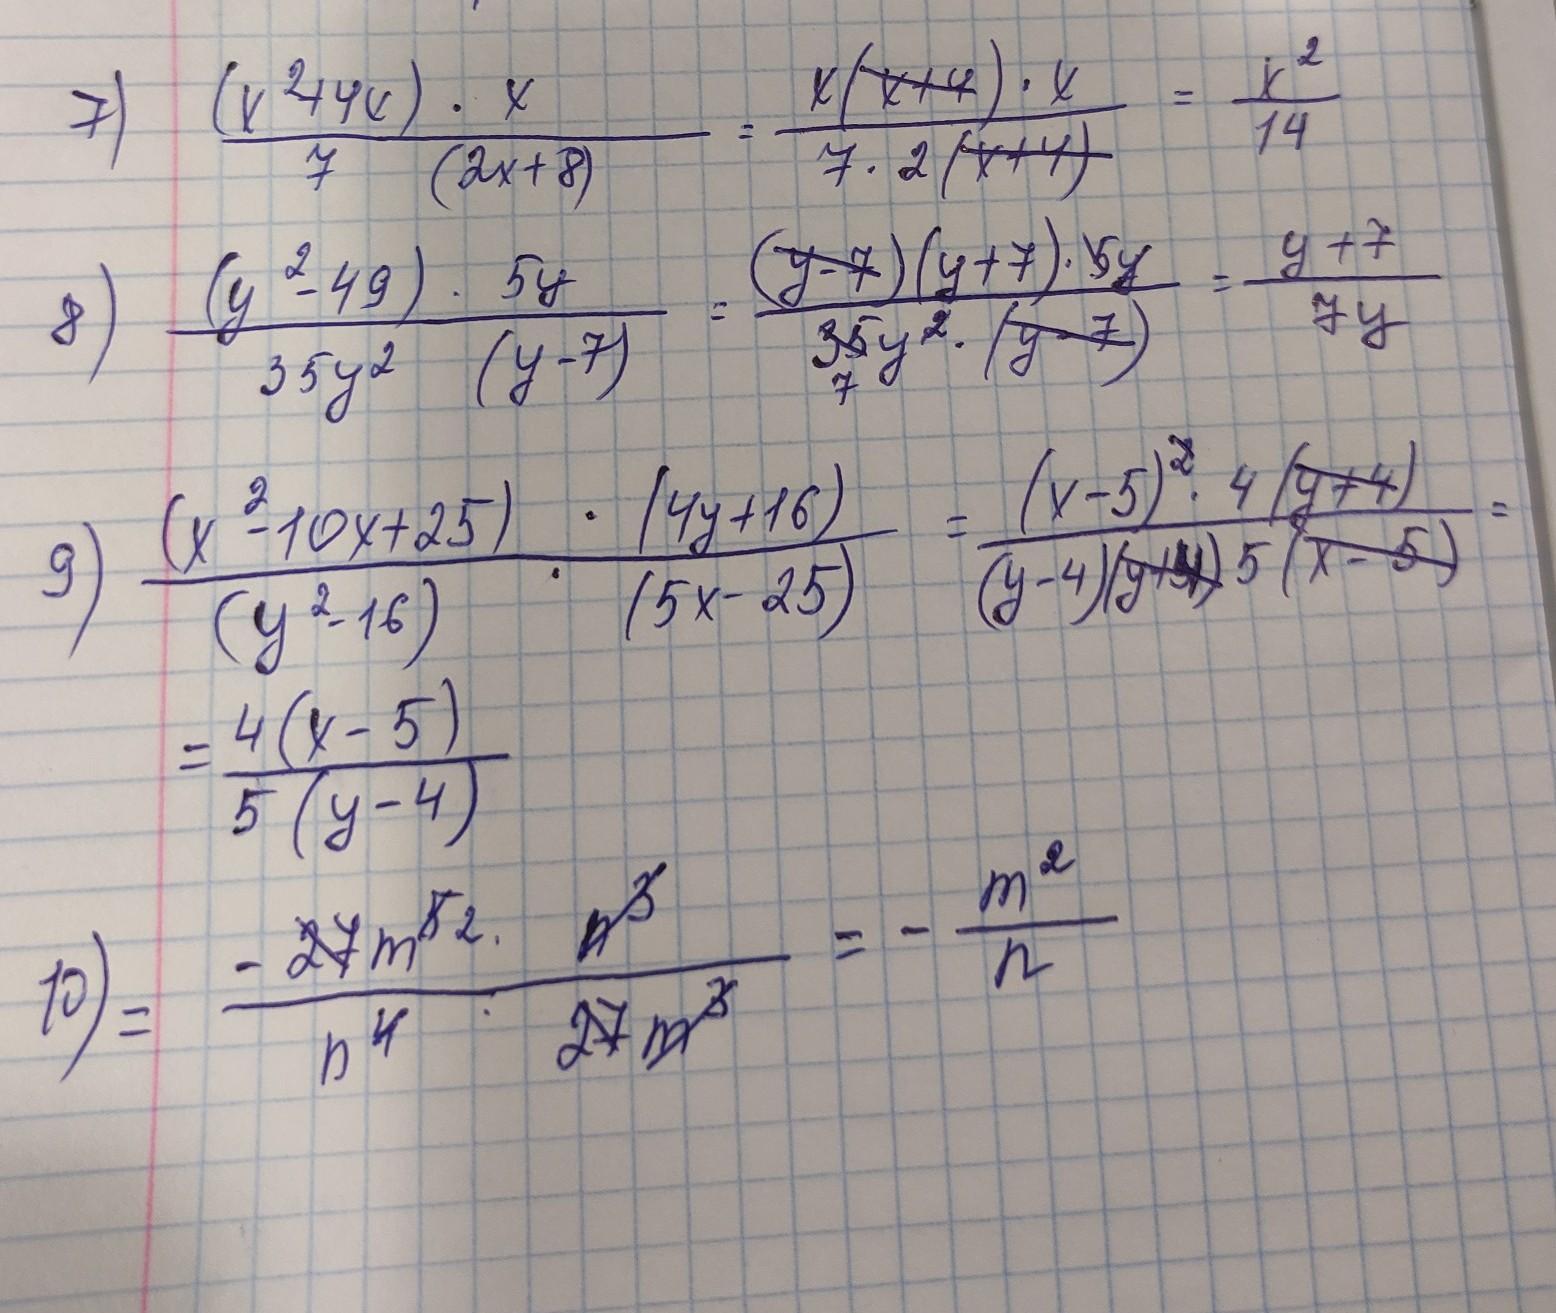 7) (x²+4x) · x / 7 (2x+8) = x(x+4) · x / 7 · 2(x+4) = x² / 14
8) (y²-49) · 5y / 35y² (y-7) = (y-7)(y+7) · 5y / 35y² · (y-7) 7 = y+7 / 7y
9) (x²-10x+25) · (4y+16) / (y²-16) · (5x-25) = (x-5)² · 4(y+4) / (y-4)(y+4) 5(x-5) =
= 4(x-5) / 5(y-4)
10) = -27m⁵ ² · n³ / n⁴ · 27m³ = - m² / n